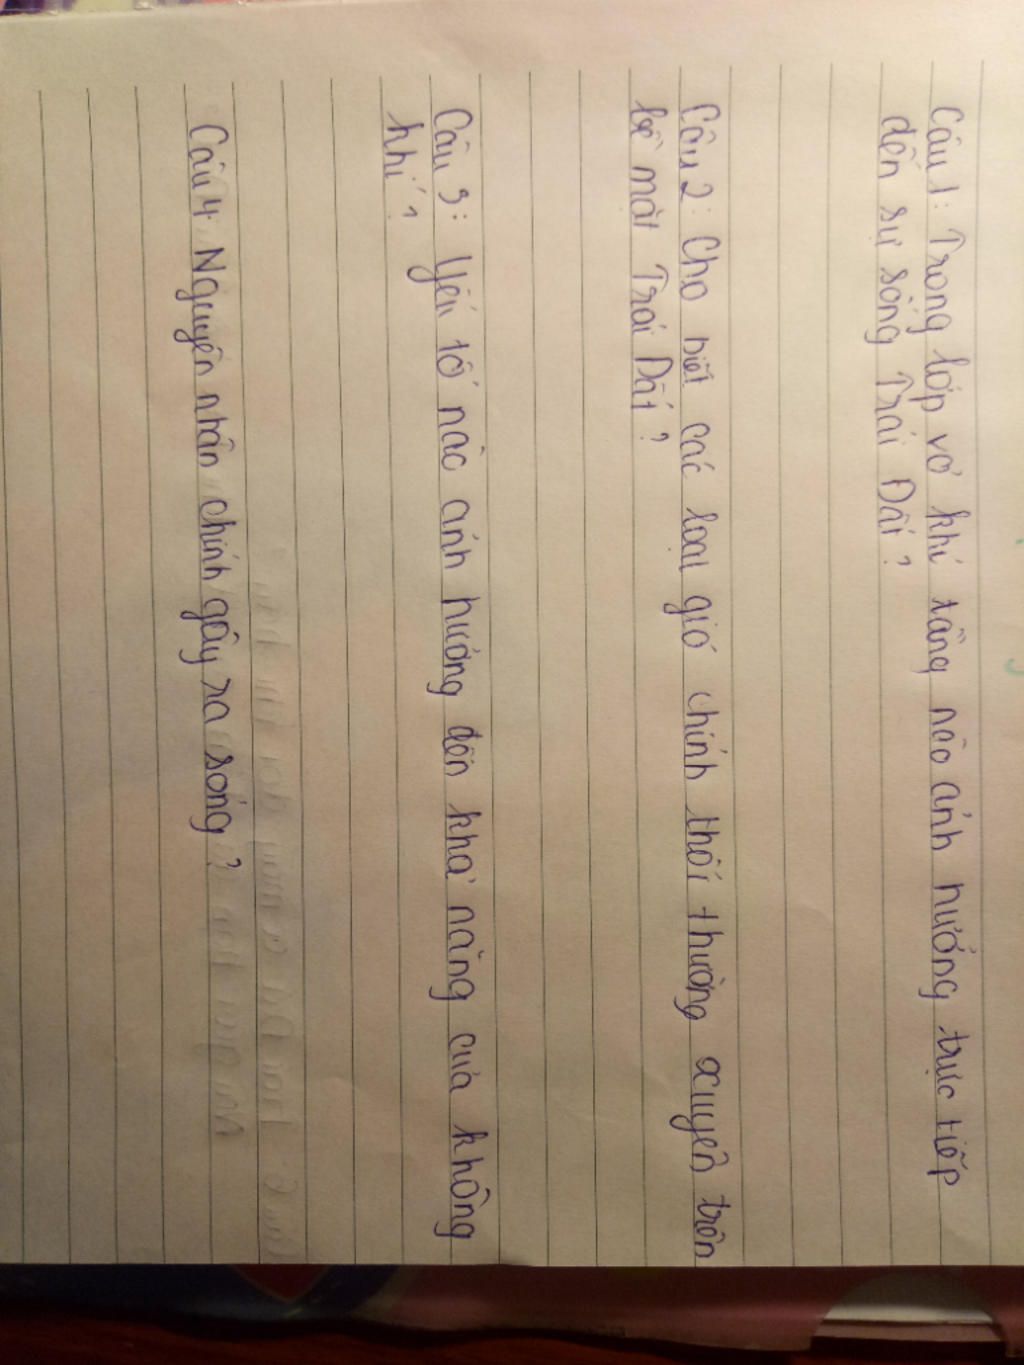 Câu 1: Trong lớp vỏ khí tầng nào ảnh hưởng trực tiếp
đến sự sống Trái Đất?
Câu 2: Cho biết các loại gió chính thổi thường xuyên trên
bề mặt Trái Đất?
Câu 3: Yếu tố nào ảnh hưởng đến khả năng của không
khí?
Câu 4: Nguyên nhân chính gây ra sóng?